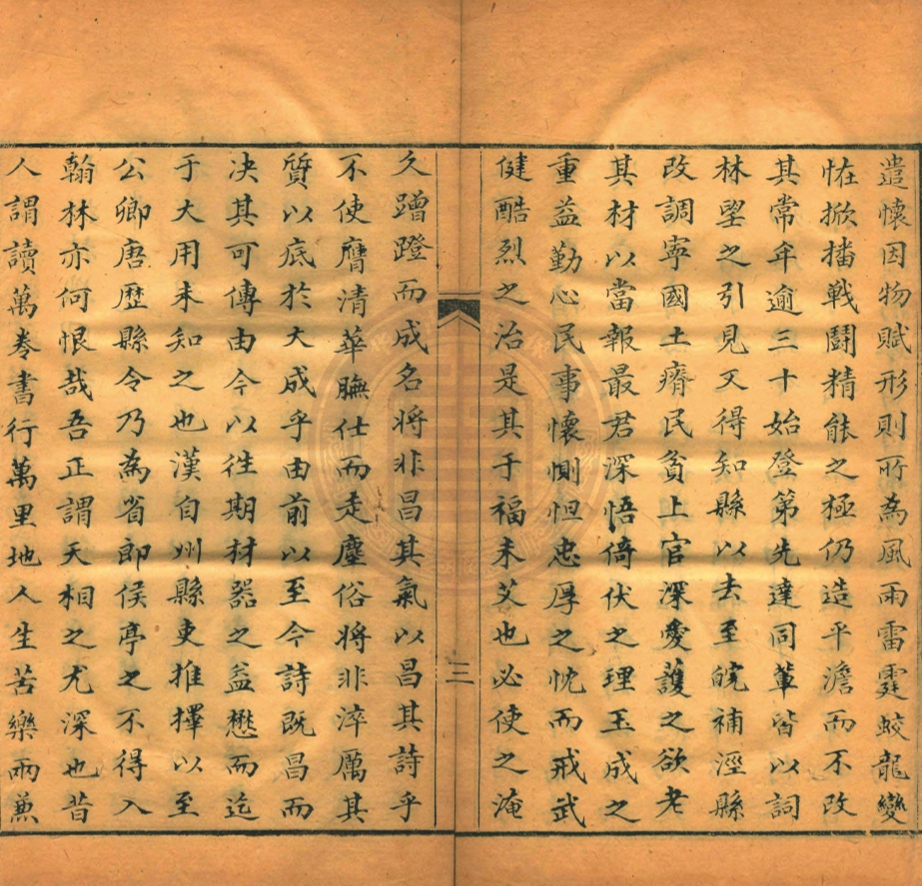 遣懷因物賦形則所為風雨雷霆蛟龍變
恠掀播戰鬪精能之極仍造平澹而不改
其常年逾三十始登第先達同輩皆以詞
林朢之引見又得知縣以去至皖補涇縣
改調寧國土瘠民貧上官深愛護之欲老
其材以當報最君深悟倚伏之理玉成之
重益勤心民事懷惻怛忠厚之忱而戒武
健酷烈之治是其于福未艾也必使之淹
三
久蹭蹬而成名將非昌其氣以昌其詩乎
不使膺清華膴仕而走塵俗將非淬厲其
質以底於大成乎由前以至今詩既昌而
决其可傳由今以徃期材器之益懋而迄
于大用未知之也漢自州縣吏推擇以至
公卿唐歷縣令乃為省郎侯亭之不得入
翰林亦何恨哉吾正謂天相之尤深也昔
人謂讀萬卷書行萬里地人生苦樂兩兼